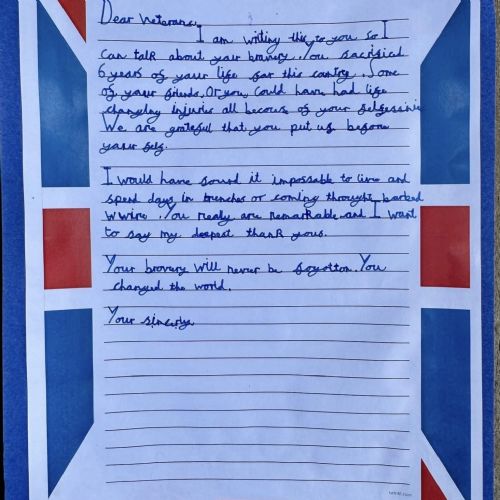 Dear Veterans,
I am writing this to you so I
can talk about your bravery. You sacrisical
6 years of your life for this country. Some
of your friends. Or you could have had life
changley injuries all becous of your selfessnes
We are grateful that you put us before
your self.
I would have found it impossable to live and
spend days in trenches or coming throught barbed
wwire. You realy are remarkable and I want
to say my deepest thank yous.
Your bravery will never be forgotton. You
changed the world.
Your sincerly